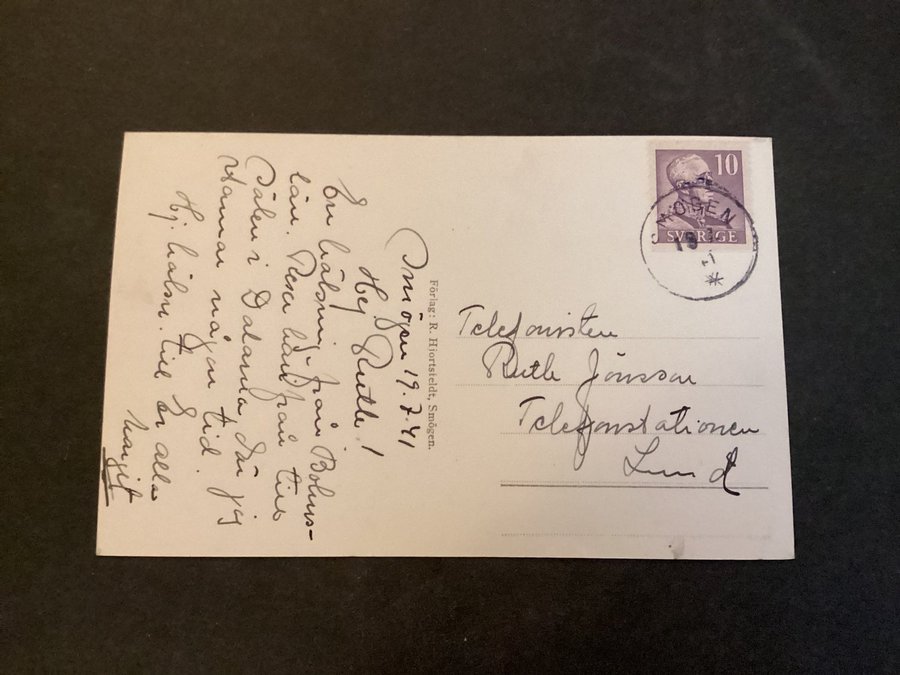 Smögen 19.7.41
Hej Ruth!
En hälsning från Bohus-
län. Reser härifrån till
Sälen i Dalarna där jag
stannar någon tid.
Hj. hälsn. till Er alla
Margit
Förlag: R. Hjortsfeldt, Smögen.
10
SVERIGE
MÖGEN
19
Telefonisten
Ruth Jönsson
Telefonstationen
Lund